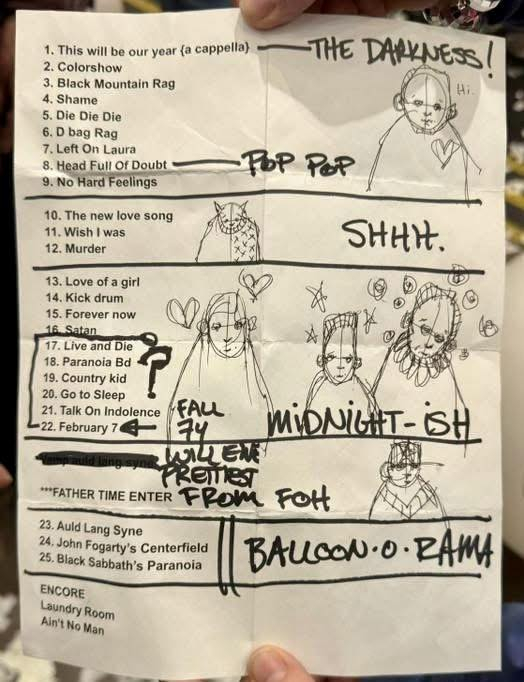 1. This will be our year {a cappella} THE DARKNESS!
2. Colorshow
3. Black Mountain Rag
Hi.
4. Shame
5. Die Die Die
6. D bag Rag
7. Left On Laura
8. Head Full Of Doubt POP POP
9. No Hard Feelings
10. The new love song
11. Wish I was SHHH.
12. Murder
13. Love of a girl
14. Kick drum
15. Forever now
16. Satan
17. Live and Die
18. Paranoia Bd ?
19. Country kid
20. Go to Sleep
21. Talk On Indolence FALL
22. February 7 74 MIDNIGHT-ISH
Vamp auld lang syne WILL
PRETTIEST
***FATHER TIME ENTER FROM FOH
23. Auld Lang Syne
24. John Fogarty's Centerfield BALLOON·O·RAMA
25. Black Sabbath's Paranoia
ENCORE
Laundry Room
Ain't No Man